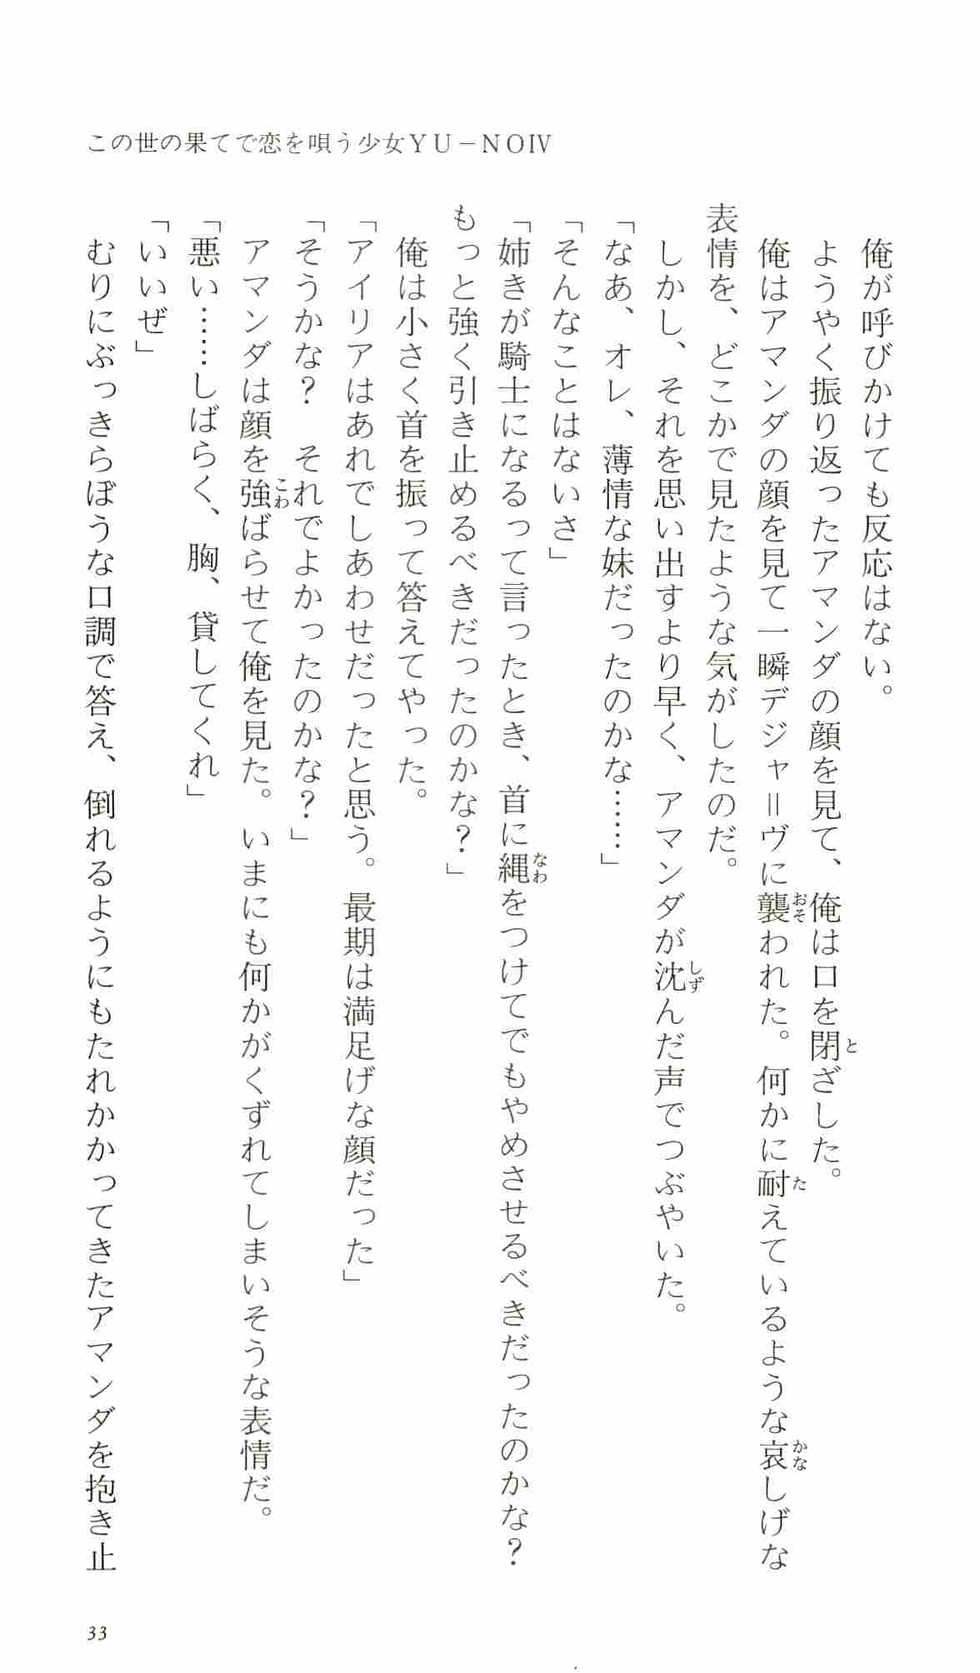 この世の果てで恋を唄う少女YU－NOⅣ
俺が呼びかけても反応はない。
ようやく振り返ったアマンダの顔を見て、俺は口を閉ざした。
俺はアマンダの顔を見て一瞬デジャ＝ヴに襲われた。何かに耐えているような哀しげな
表情を、どこかで見たような気がしたのだ。
しかし、それを思い出すより早く、アマンダが沈んだ声でつぶやいた。
「なあ、オレ、薄情な妹だったのかな……」
「そんなことはないさ」
「姉きが騎士になるって言ったとき、首に縄をつけてでもやめさせるべきだったのかな？
もっと強く引き止めるべきだったのかな？」
俺は小さく首を振って答えてやった。
「アイリアはあれでしあわせだったと思う。最期は満足げな顔だった」
「そうかな？　それでよかったのかな？」
アマンダは顔を強ばらせて俺を見た。いまにも何かがくずれてしまいそうな表情だ。
「悪い……しばらく、胸、貸してくれ」
「いいぜ」
むりにぶっきらぼうな口調で答え、倒れるようにもたれかかってきたアマンダを抱き止
33